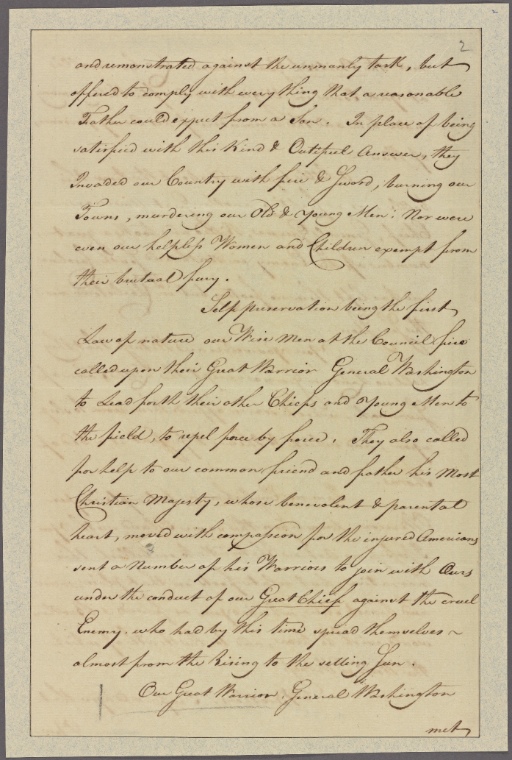 2
and remonstrated against the unmanly task, but
offered to comply with everything that a reasonable
Father could expect from a Son. In place of being
satisfied with this Kind & Dutiful Answer, they
Invaded our Country with fire & Sword, burning our
Towns, murdering our Old & Young Men: Nor were
even our helpless Women and Children exempt from
their brutual fury.
Self preservation being the first
Law of nature our Wise Men at the Council fire
called upon their Great Warrior General Washington
to Lead forth their other Chiefs and Young Men to
the field, to repel force by force. They also called
for help to our common friend and father his Most
Christian Majesty, whose benevolent & parental
heart, moved with compassion for the injured Americans
sent a Number of his Warriors to join with Ours
under the conduct of our Great Chief against the cruel
Enemy, who had by this time spread themselves ~
almost from the Rising to the setting Sun.
Our Great Warrior, General Washington
met